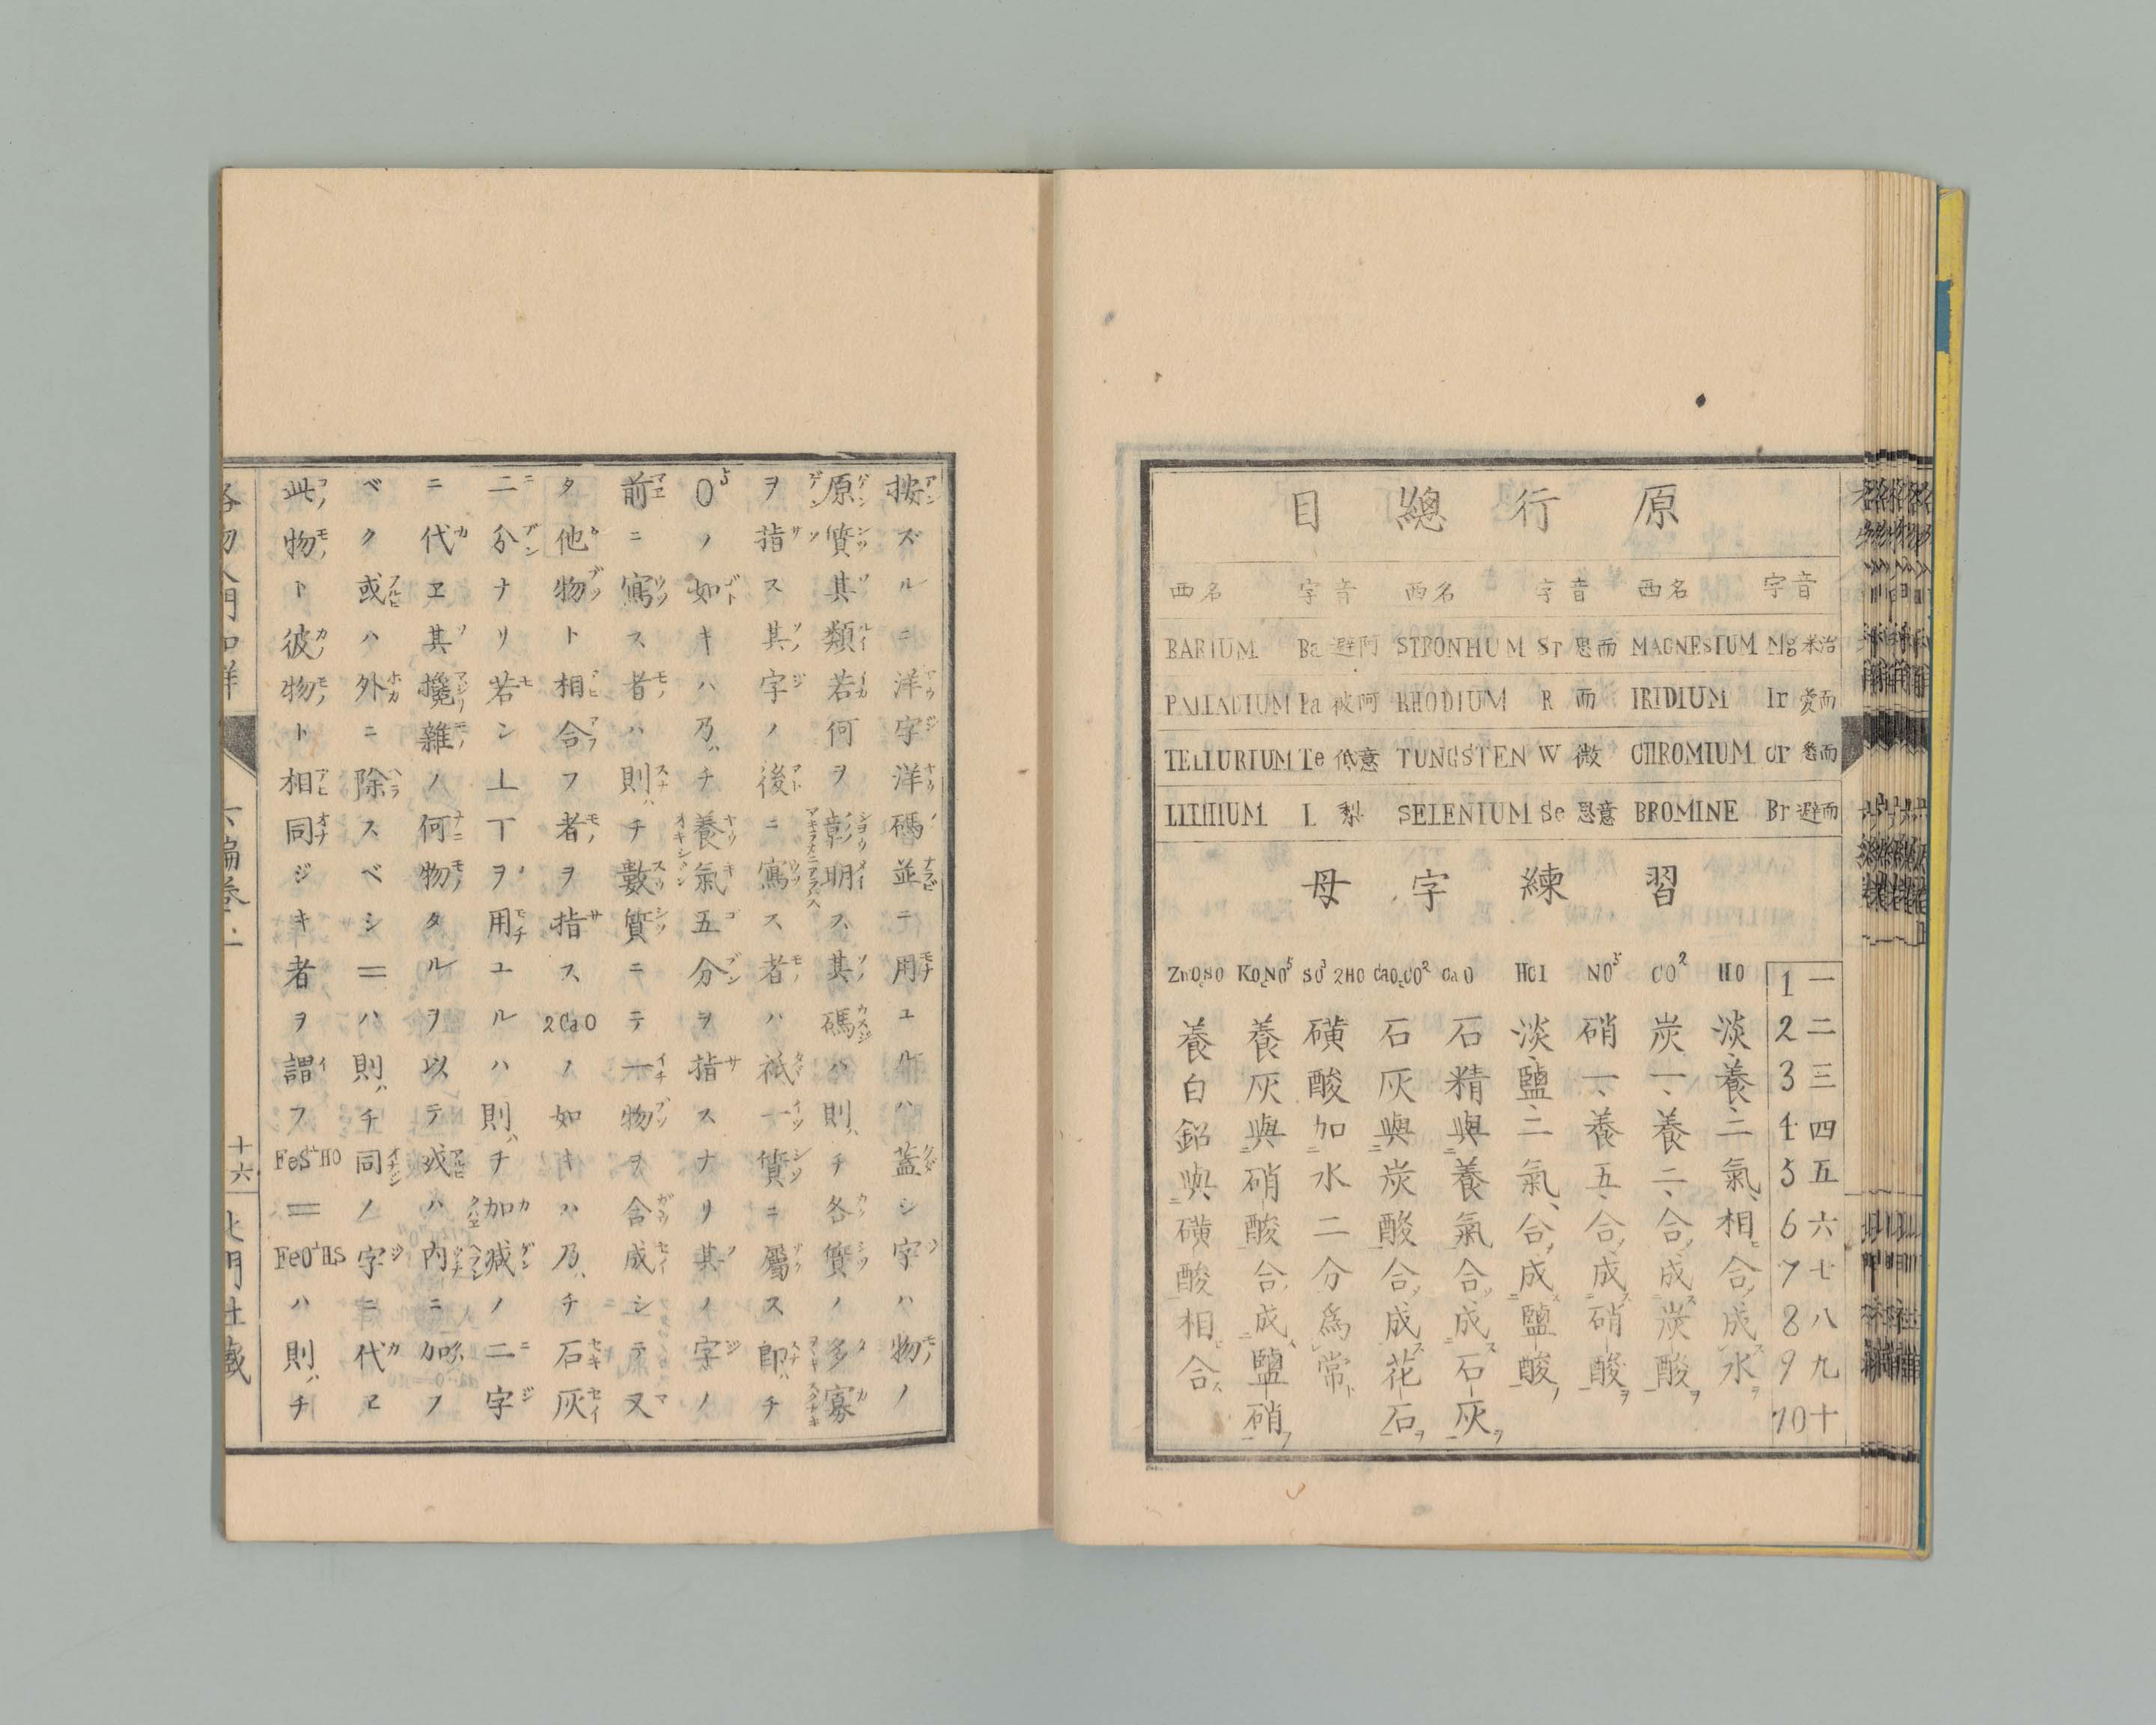 原行總目
字音 西名 字音 西名 字音 西名
Mg 米治 MAGNESIUM Sr 思而 STRONTIUM Ba 避阿 BARIUM
Ir 愛而 IRIDIUM R 而 RHODIUM Pa 彼阿 PALLADIUM
Cr 悉而 CHROMIUM W 微 TUNGSTEN Te 低意 TELLURIUM
Br 避而 BROMINE Se 思意 SELENIUM L 梨 LITHIUM
習練字母
一二三四五六七八九十
1 2 3 4 5 6 7 8 9 10
HO 淡養二氣相合成水
CO² 炭一養二合成炭酸
NO⁵ 硝一養五合成硝酸
HCl 淡鹽二氣合成鹽酸
CaO 石精與養氣合成石灰
CaO,CO² 石灰與炭酸合成花石
SO³ 2HO 磺酸加水二分為常
KO,NO⁵ 養灰與硝酸合成鹽硝
ZnO,SO 養白鉛與磺酸相合
按ズルニ洋字洋碼並テ用ユル所ハ蓋シ字ハ物ノ
原質其類若何ヲ彰明ス其碼ハ則チ各質ノ多寡
ヲ指ス其字ノ後ニ寫ス者ハ祇一質ニ屬ス即チ
O⁵ノ如キハ乃チ養氣五分ヲ指スナリ其ノ字ノ
前ニ寫ス者ハ則チ數質ニテ一物ヲ含成シテ又
タ他物ト相合フ者ヲ指ス2CaOノ如キハ乃チ石灰
二分ナリ若ン⊥丅ヲ用ユルハ則チ加減ノ二字
ニ代ヱ其攙雜ノ何物タルヲ以テ或ハ內ニ加フ
ベク或ハ外ニ除スベシ＝ハ則チ同ノ字ニ代ヱ
此物ト彼物ト相同ジキ者ヲ謂フFeS⊥HO＝FeO⊥HSハ則チ
格物入門和解 六編卷之一 十六 北門社藏